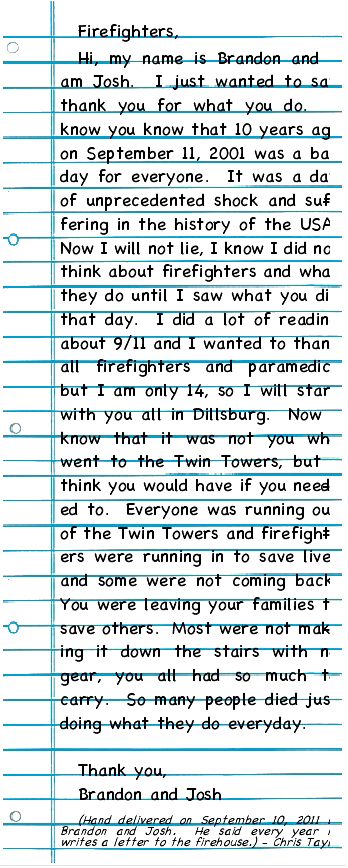 Firefighters,
Hi, my name is Brandon and
am Josh. I just wanted to sa
thank you for what you do.
know you know that 10 years ag
on September 11, 2001 was a ba
day for everyone. It was a da
of unprecedented shock and suf
fering in the history of the USA
Now I will not lie, I know I did no
think about firefighters and wha
they do until I saw what you di
that day. I did a lot of readin
about 9/11 and I wanted to than
all firefighters and paramedic
but I am only 14, so I will star
with you all in Dillsburg. Now
know that it was not you wh
went to the Twin Towers, but
think you would have if you need
ed to. Everyone was running ou
of the Twin Towers and firefight
ers were running in to save live
and some were not coming back
You were leaving your families t
save others. Most were not mak
ing it down the stairs with n
gear, you all had so much t
carry. So many people died jus
doing what they do everyday.
Thank you,
Brandon and Josh
(Hand delivered on September 10, 2011
Brandon and Josh. He said every year
writes a letter to the firehouse.) - Chris Tay